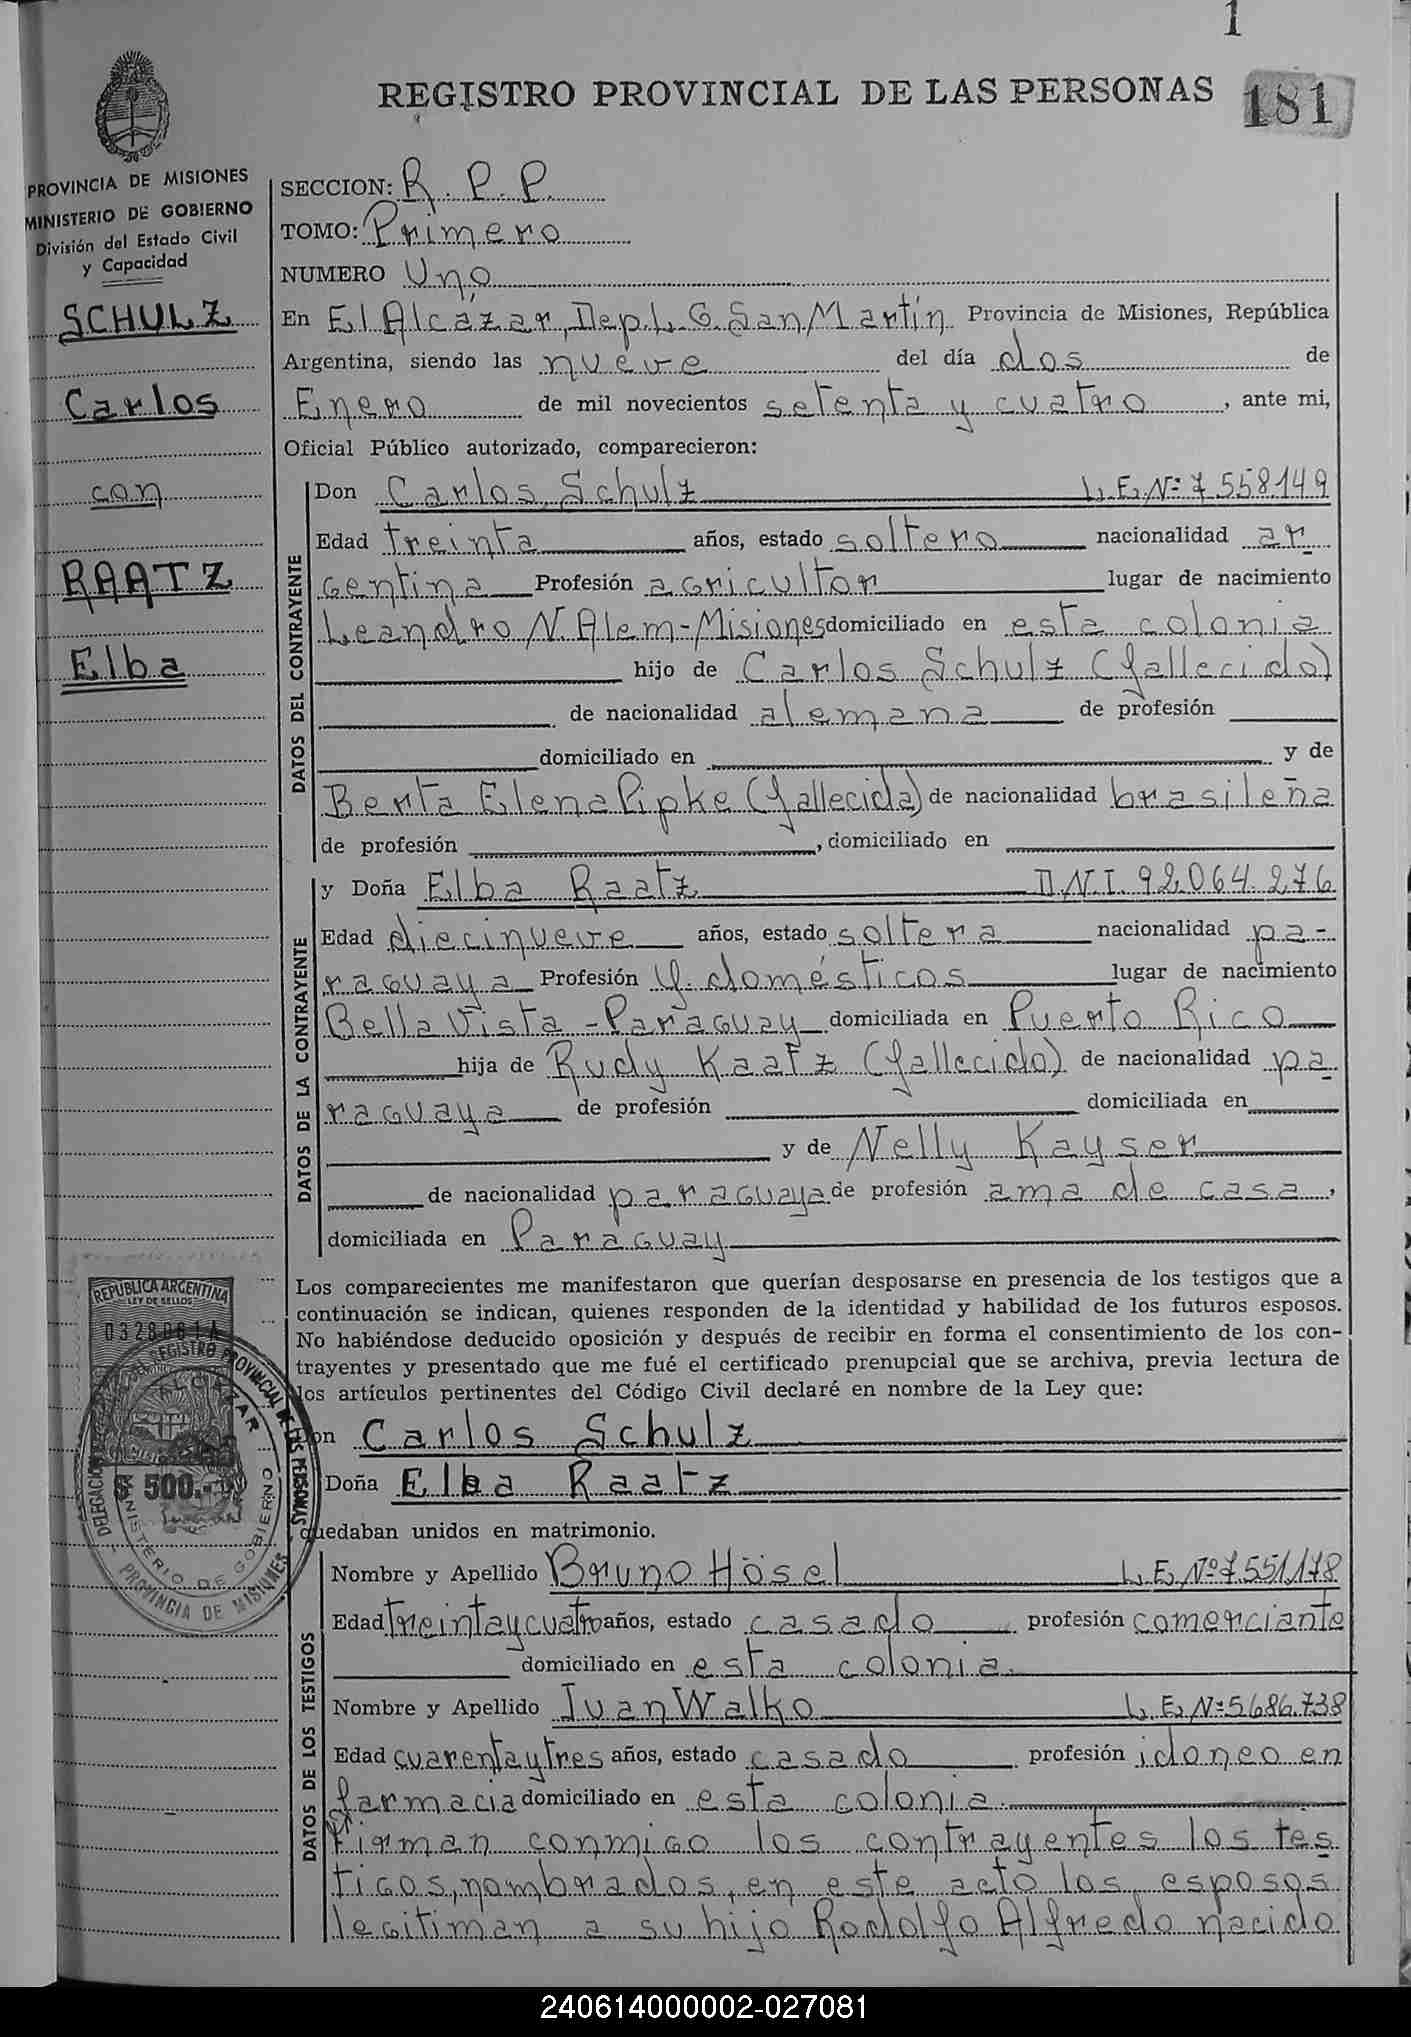 1
REGISTRO PROVINCIAL DE LAS PERSONAS
181
PROVINCIA DE MISIONES
MINISTERIO DE GOBIERNO
División del Estado Civil
y Capacidad
SCHULZ
Carlos
con
RAATZ
Elba
SECCION: R. P. P.
TOMO: Primero
NUMERO Uno
En El Alcázar, Dep. L. G. San Martín Provincia de Misiones, República
Argentina, siendo las nueve del día dos de
Enero de mil novecientos setenta y cuatro, ante mi,
Oficial Público autorizado, comparecieron:
DATOS DEL CONTRAYENTE
Don Carlos Schulz L. E. Nº 7558149
Edad treinta años, estado soltero nacionalidad ar
gentina Profesión agricultor lugar de nacimiento
Leandro N. Alem-Misiones domiciliado en esta colonia
hijo de Carlos Schulz (fallecido)
de nacionalidad alemana de profesión
domiciliado en y de
Berta Elena Pipke (fallecida) de nacionalidad brasileña
de profesión , domiciliado en
DATOS DE LA CONTRAYENTE
y Doña Elba Raatz D.N.I. 92.064.276
Edad diecinueve años, estado soltera nacionalidad pa-
raguaya Profesión Q. domésticos lugar de nacimiento
Bella Vista - Paraguay domiciliada en Puerto Rico
hija de Rudy Raatz (fallecido) de nacionalidad pa
raguaya de profesión domiciliada en
y de Nelly Kayser
de nacionalidad paraguaya de profesión ama de casa,
domiciliada en Paraguay
Los comparecientes me manifestaron que querían desposarse en presencia de los testigos que a
continuación se indican, quienes responden de la identidad y habilidad de los futuros esposos.
No habiéndose deducido oposición y después de recibir en forma el consentimiento de los con-
trayentes y presentado que me fué el certificado prenupcial que se archiva, previa lectura de
los artículos pertinentes del Código Civil declaré en nombre de la Ley que:
Don Carlos Schulz
Doña Elba Raatz
quedaban unidos en matrimonio.
REPUBLICA ARGENTINA
LEY DE SELLOS
$ 500.-
REGISTRO PROVINCIAL DE LAS PERSONAS
DELEGACION
ALCAZAR
MINISTERIO DE GOBIERNO
PROVINCIA DE MISIONES
DATOS DE LOS TESTIGOS
Nombre y Apellido Bruno Hösel L. E. Nº 7.551.178
Edad treinta y cuatro años, estado casado profesión comerciante
domiciliado en esta colonia.
Nombre y Apellido Juan Walko L. E. Nº 5.686.738
Edad cuarenta y tres años, estado casado profesión idoneo en
farmacia domiciliado en esta colonia.
Firman conmigo los contrayentes los tes
tigos, nombrados, en este acto los esposos
legitiman a su hijo Rodolfo Alfredo nacido
240614000002-027081